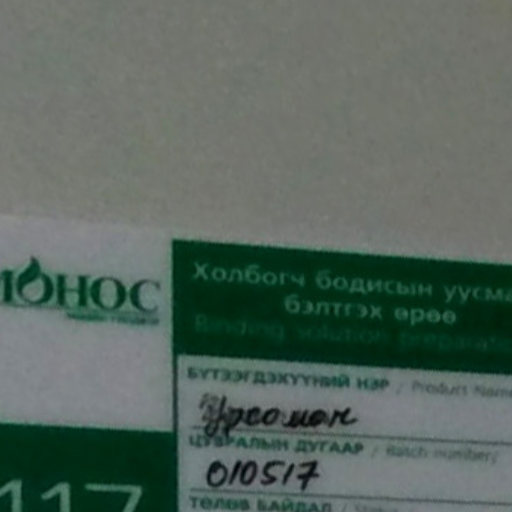 МОНОС
Холбогч бодисын уусма
бэлтгэх өрөө
Binding solution preparatio
БҮТЭЭГДЭХҮҮНИЙ НЭР / Product Name
Урсоман
ЦУВРАЛЫН ДУГААР / Batch number/
010517
ТӨЛӨВ БАЙДАЛ /
117